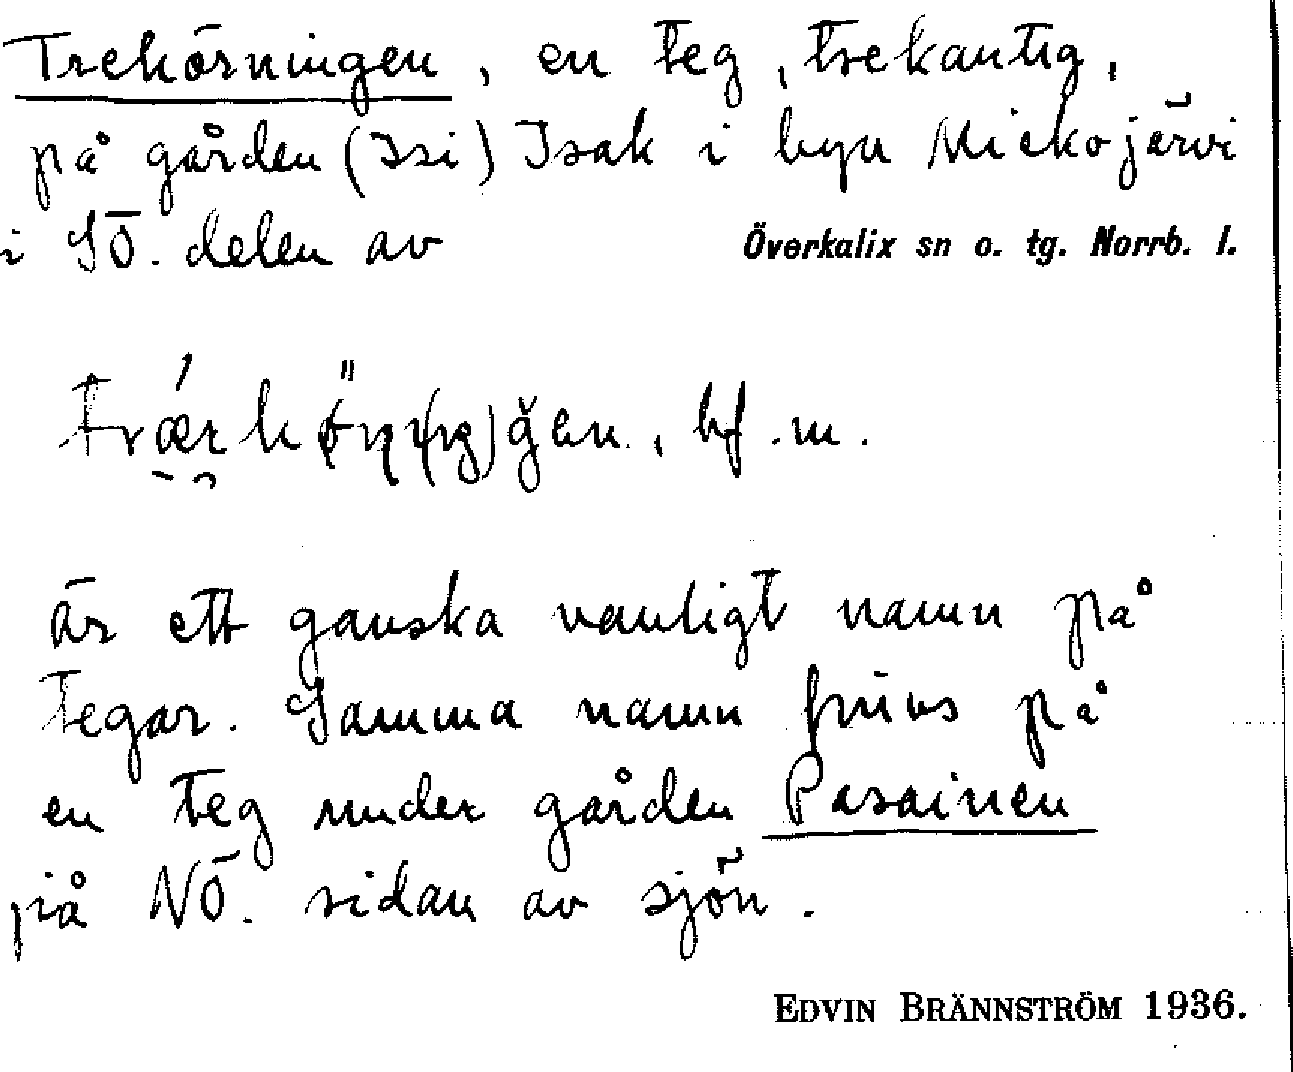 Trehörningen, en teg, trekantig,
på gården (Isi) Isak i byn Mickojärvi
i SÖ. delen av Överkalix sn o. tg. Norrb. l.
bf. m.
är ett ganska vanligt namn på
tegar. Samma namn finns på
en teg under gården Pasainen
på NÖ. sidan av sjön.
EDVIN BRÄNNSTRÖM 1936.